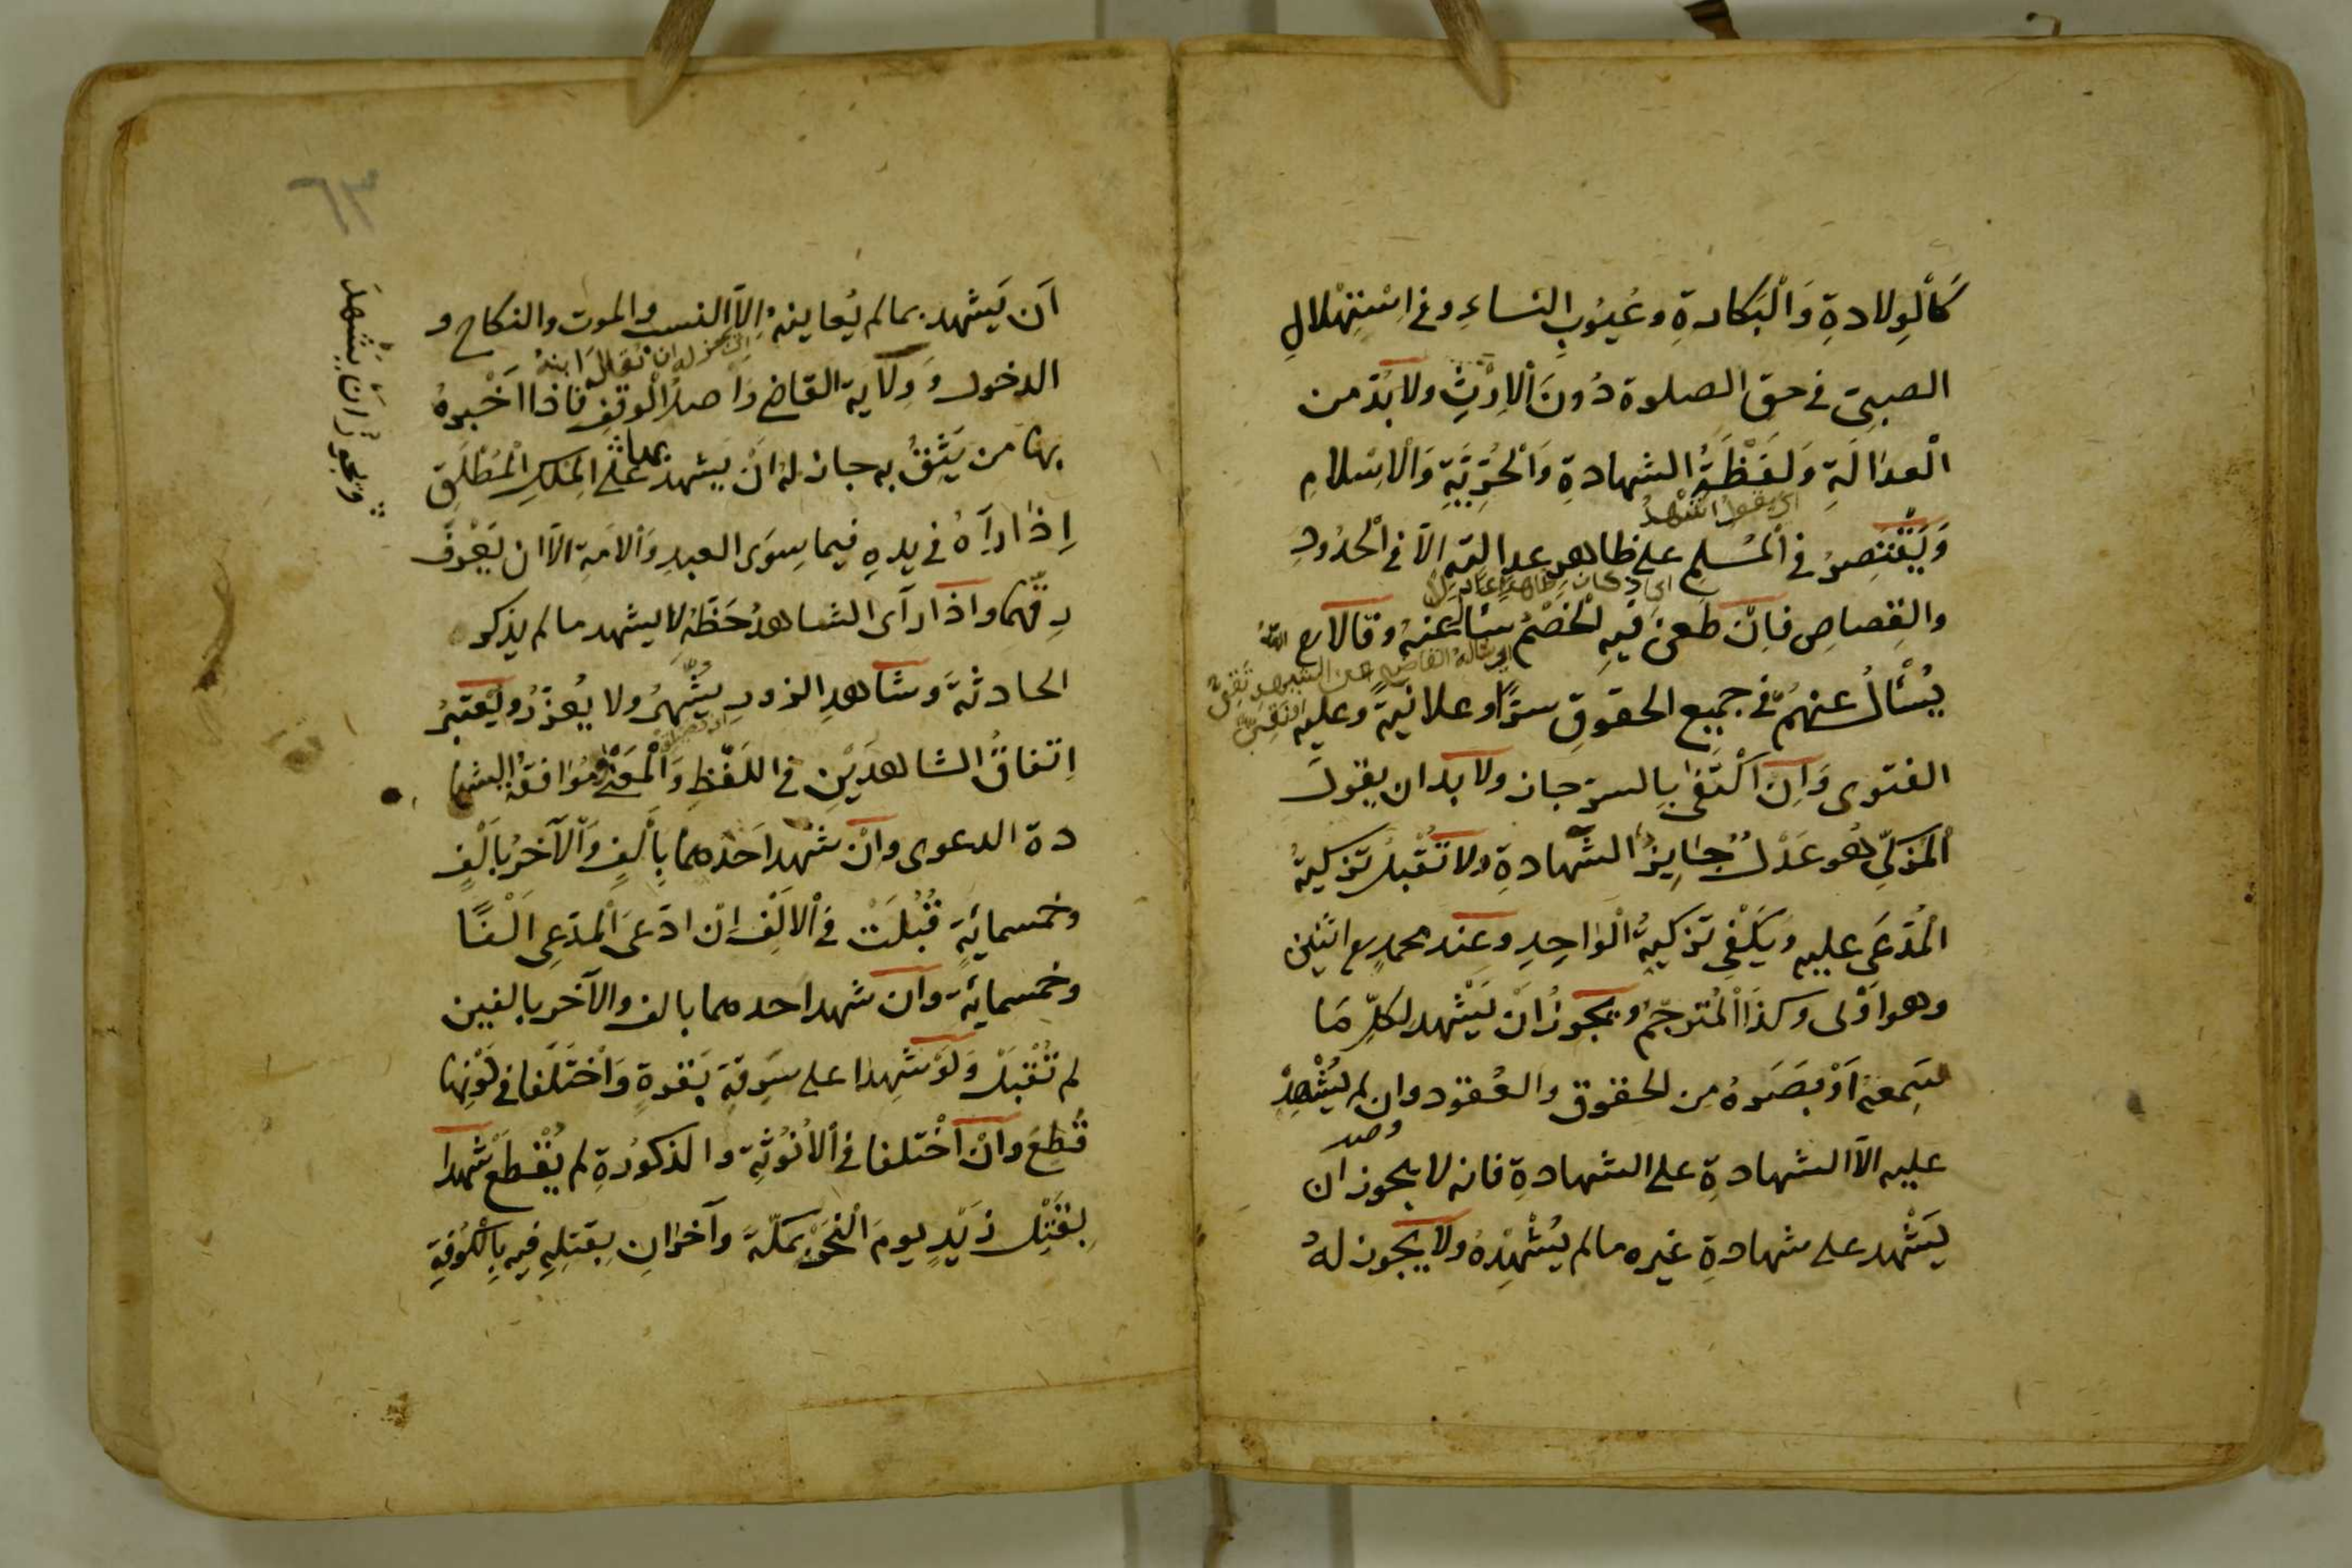 كَالْوِلادةِ وَالْبَكارةِ وعُيُوبِ النساءِ وفي اسْتِهْلالِ
الصبىّ في حق الصلوة دُونَ الْاِرْثِ ولا بدّ من
الْعدالَةِ وَلَفْظَةُ الشهادةِ وَالْحُرِّيَّةِ وَالْاسْلامِ
اى يقول اشْهدُ
وَيَقْتَصِرُ في الْمُسْلِمِ على ظاهر عدالته الّا في الْحُدُودِ
والقِصاصِ فاِنْ طعنَ فيهِ الْخَصْمُ سئال عنهُ وقالا رح
يُسْئَالُ عنهُمْ في جميع الحقوقِ سرّا وعلانيةً وعليه
الفتوى وَاِن اكْتَفٰى بالسرّ جاز ولا بد ان يقولَ
الْمُزكِّى هُو عَدْلٌ جايزُ الشّهادةِ ولا تُقْبلُ تزكيةُ
الْمُدّعَى عليه ويَكْفِى تزكيةُ الْواحِدِ وعند محمدٍ رح اثنين
وهو اَوْلى وكذا الْمُترجِمُ ويجوزُ اَنْ يَشْهد لكلِّ مَا
سَمِعهُ اَوْ بَصَرهُ من الحقوق والعُقود وان لم يُشْهِدْ
عليه الّا الشهادةِ على الشهادةِ فانه لا يجوز ان
يَشْهد على شهادةِ غيره مالم يُشْهِدْهُ ولا يجوز لهُ
٦٣
اَن يَشهد بما لم يُعاينهُ اِلّا النسب والموت والنكاح و
الدخول وَوِلاية القاضى وَاَصلُ الْوقفِ فاذا اَخْبرهُ
بها من يَثِقُ به جاز لهُ اَنْ يشهد بها على الْمِلكِ الْمُطْلَقِ
ويجوز اَنْ يَشْهدَ
اِذا رآهُ في يدهِ فيما سِوَى العبدِ وَالامَةِ الّا ان يَعْرِفَ
رِقّهما واذا رآى الشاهدُ خَطّهُ لا يشهد ما لم يذكر
الحادثةَ وَشاهدِ الزورِ يُشَهّرُ ولا يُعزّرُ ويُعْتبرُ
اِتفاقُ الشاهدَيْنِ في اللّفْظِ وَالْمَعْنى ومُوافقةُ الشها
دة الدعوى وَاِنْ شهد احدُهما بِاَلفٍ وَالْآخرُ باَلْفٍ
وخمسمائةٍ قُبُلَتْ في الْالْفِ اِن ادّعَى الْمدّعِى اَلْفًا
وخمسمائة وان شهد احدهما بالف والآخر بالفين
لم تُقْبلْ وَلَوْ شَهِدا على سَرِقةِ بَقرةٍ وَاخْتَلَفا في لَوْنِها
قُطِعَ وانْ اخْتلفا في الْاُنُوثةِ والذكُورةِ لم يُقْطعْ شهدا
بِقَتْلِ زَيْدٍ يومَ النحْرِ بمكّة وآخرانِ بِقتلِهِ فيه بِالْكُوفَةِ